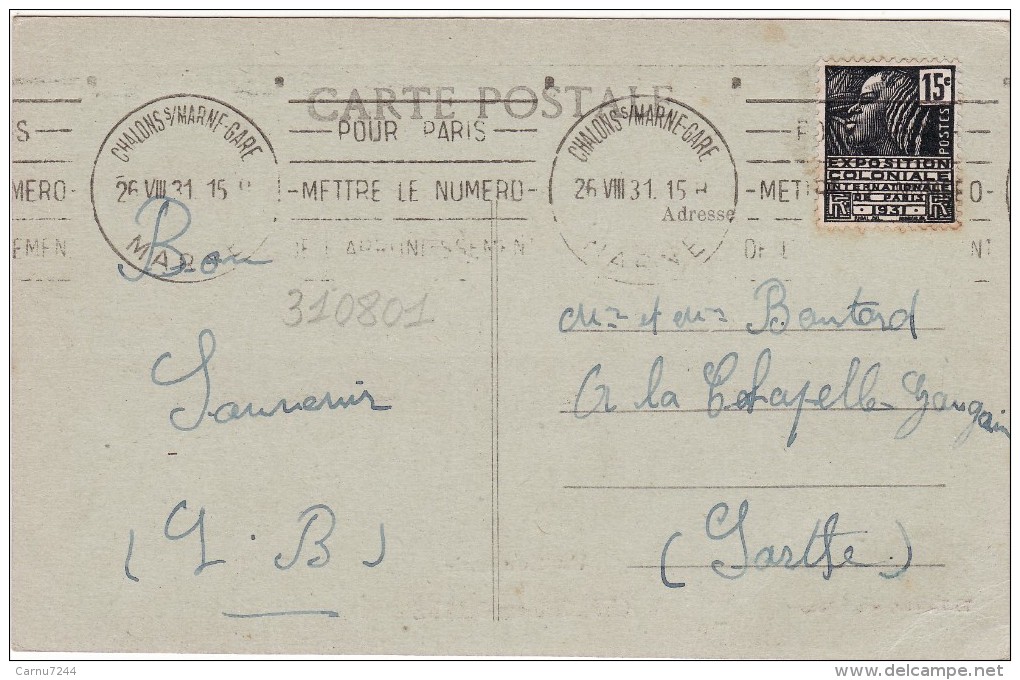 CARTE POSTALE
CHALONS s/MARNE-GARE
26 VIII 31. 15
MARNE
POUR PARIS
METTRE LE NUMERO
DE L'ARRONDISSEMENT
CHALONS s/MARNE-GARE
26 VIII 31. 15 H
MARNE
15c
POSTES
EXPOSITION
COLONIALE
INTERNATIONALE
DE PARIS
1931
Adresse
Bon
Souvenir
(G. B)
310801
Mr et Mme Boutard
A la Chapelle-Gaugain
(Sarthe)
Carnu7244
www.delcampe.net